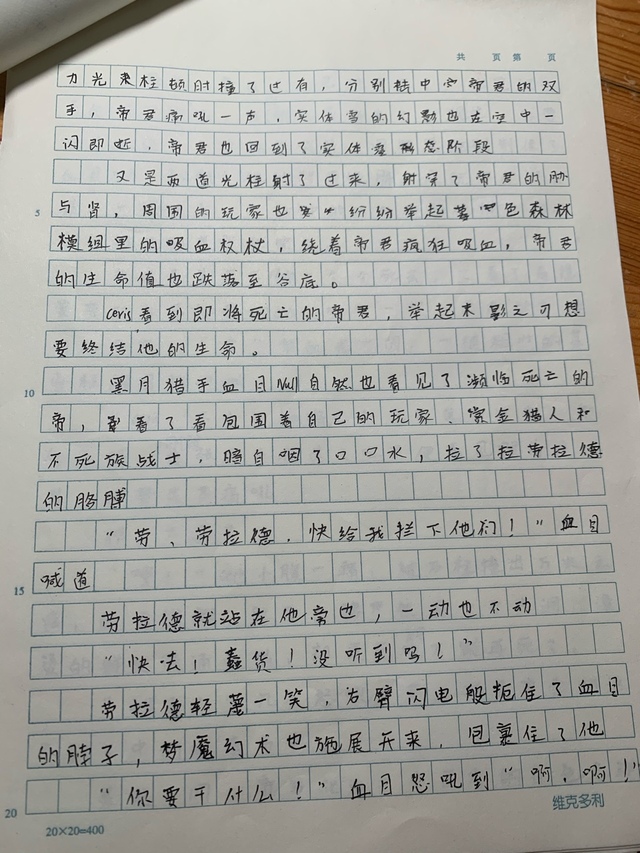 共 页 第 页
力光束柱顿时撞了过有，分别轰中帝君的双
手，帝君痛吼一声，实体雪的幻影也在空中一
闪即逝，帝君也回到了实体形态阶段
又是两道光柱射了过来，射穿了帝君的肺
5 与肾，周围的玩家也纷纷举起色森林
模组里的吸血权杖，绕着帝君疯狂吸血，帝君
的生命值也跌落至谷底。
ceris看到即将死亡的帝君，举起末影之刃想
要终结他的生命。
10 黑月猎手血目Null自然也看见了濒临死亡的
帝，看了看包围着自己的玩家、赏金猎人和
不死族战士，暗自咽了口口水，拉了拉劳拉德
的胳膊
“劳、劳拉德，快给我拦下他们！”血目
15 喊道
劳拉德就站在他旁边，一动也不动
“快去！蠢货！没听到吗！”
劳拉德轻蔑一笑，右臂闪电般扼住了血目
的脖子，梦魔幻术也施展开来，包裹住了他
20 “你要干什么！”血目怒吼到“啊，啊！”
20×20=400 维克多利